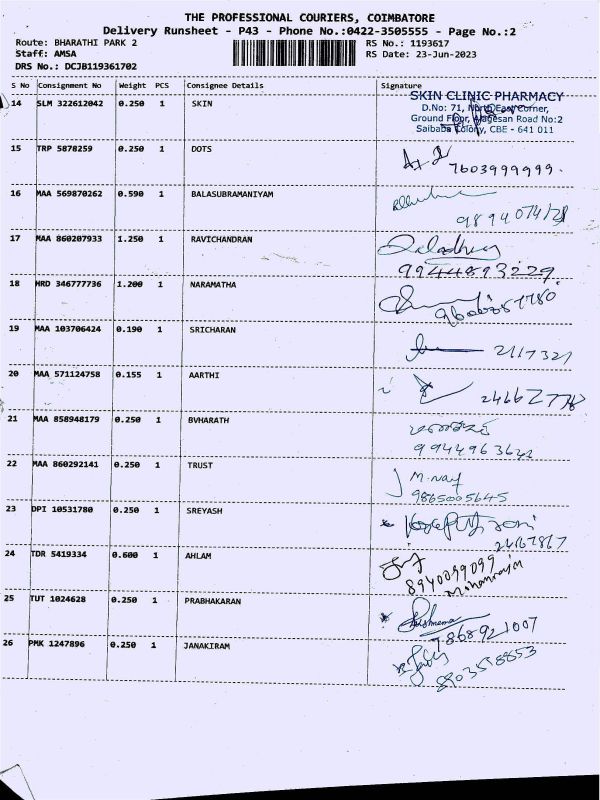 THE PROFESSIONAL COURIERS, COIMBATORE
Delivery Runsheet - P43 - Phone No.:0422-3505555 - Page No.:2
Route: BHARATHI PARK 2 RS No.: 1193617
Staff: AMSA RS Date: 23-Jun-2023
DRS No.: DCJB119361702
S No Consignment No Weight PCS Consignee Details Signature
14 SLM 322612042 0.250 1 SKIN
SKIN CLINIC PHARMACY
D.No: 71, North East Corner,
Ground Floor, Alagesan Road No:2
Saibaba Colony, CBE - 641 011
15 TRP 5878259 0.250 1 DOTS
7603999999.
16 MAA 569870262 0.590 1 BALASUBRAMANIYAM
17 MAA 860207933 1.250 1 RAVICHANDRAN
9944893229
18 HRD 346777736 1.200 1 NARAMATHA
19 MAA 103706424 0.190 1 SRICHARAN
2117321
20 MAA 571124758 0.155 1 AARTHI
21 MAA 858948179 0.250 1 BVHARATH
22 MAA 860292141 0.250 1 TRUST
9865005645
23 DPI 10531780 0.250 1 SREYASH
2467867
24 TDR 5419334 0.600 1 AHLAM
8940099099
25 TUT 1024628 0.250 1 PRABHAKARAN
7868921007
26 PMK 1247896 0.250 1 JANAKIRAM
8903558853